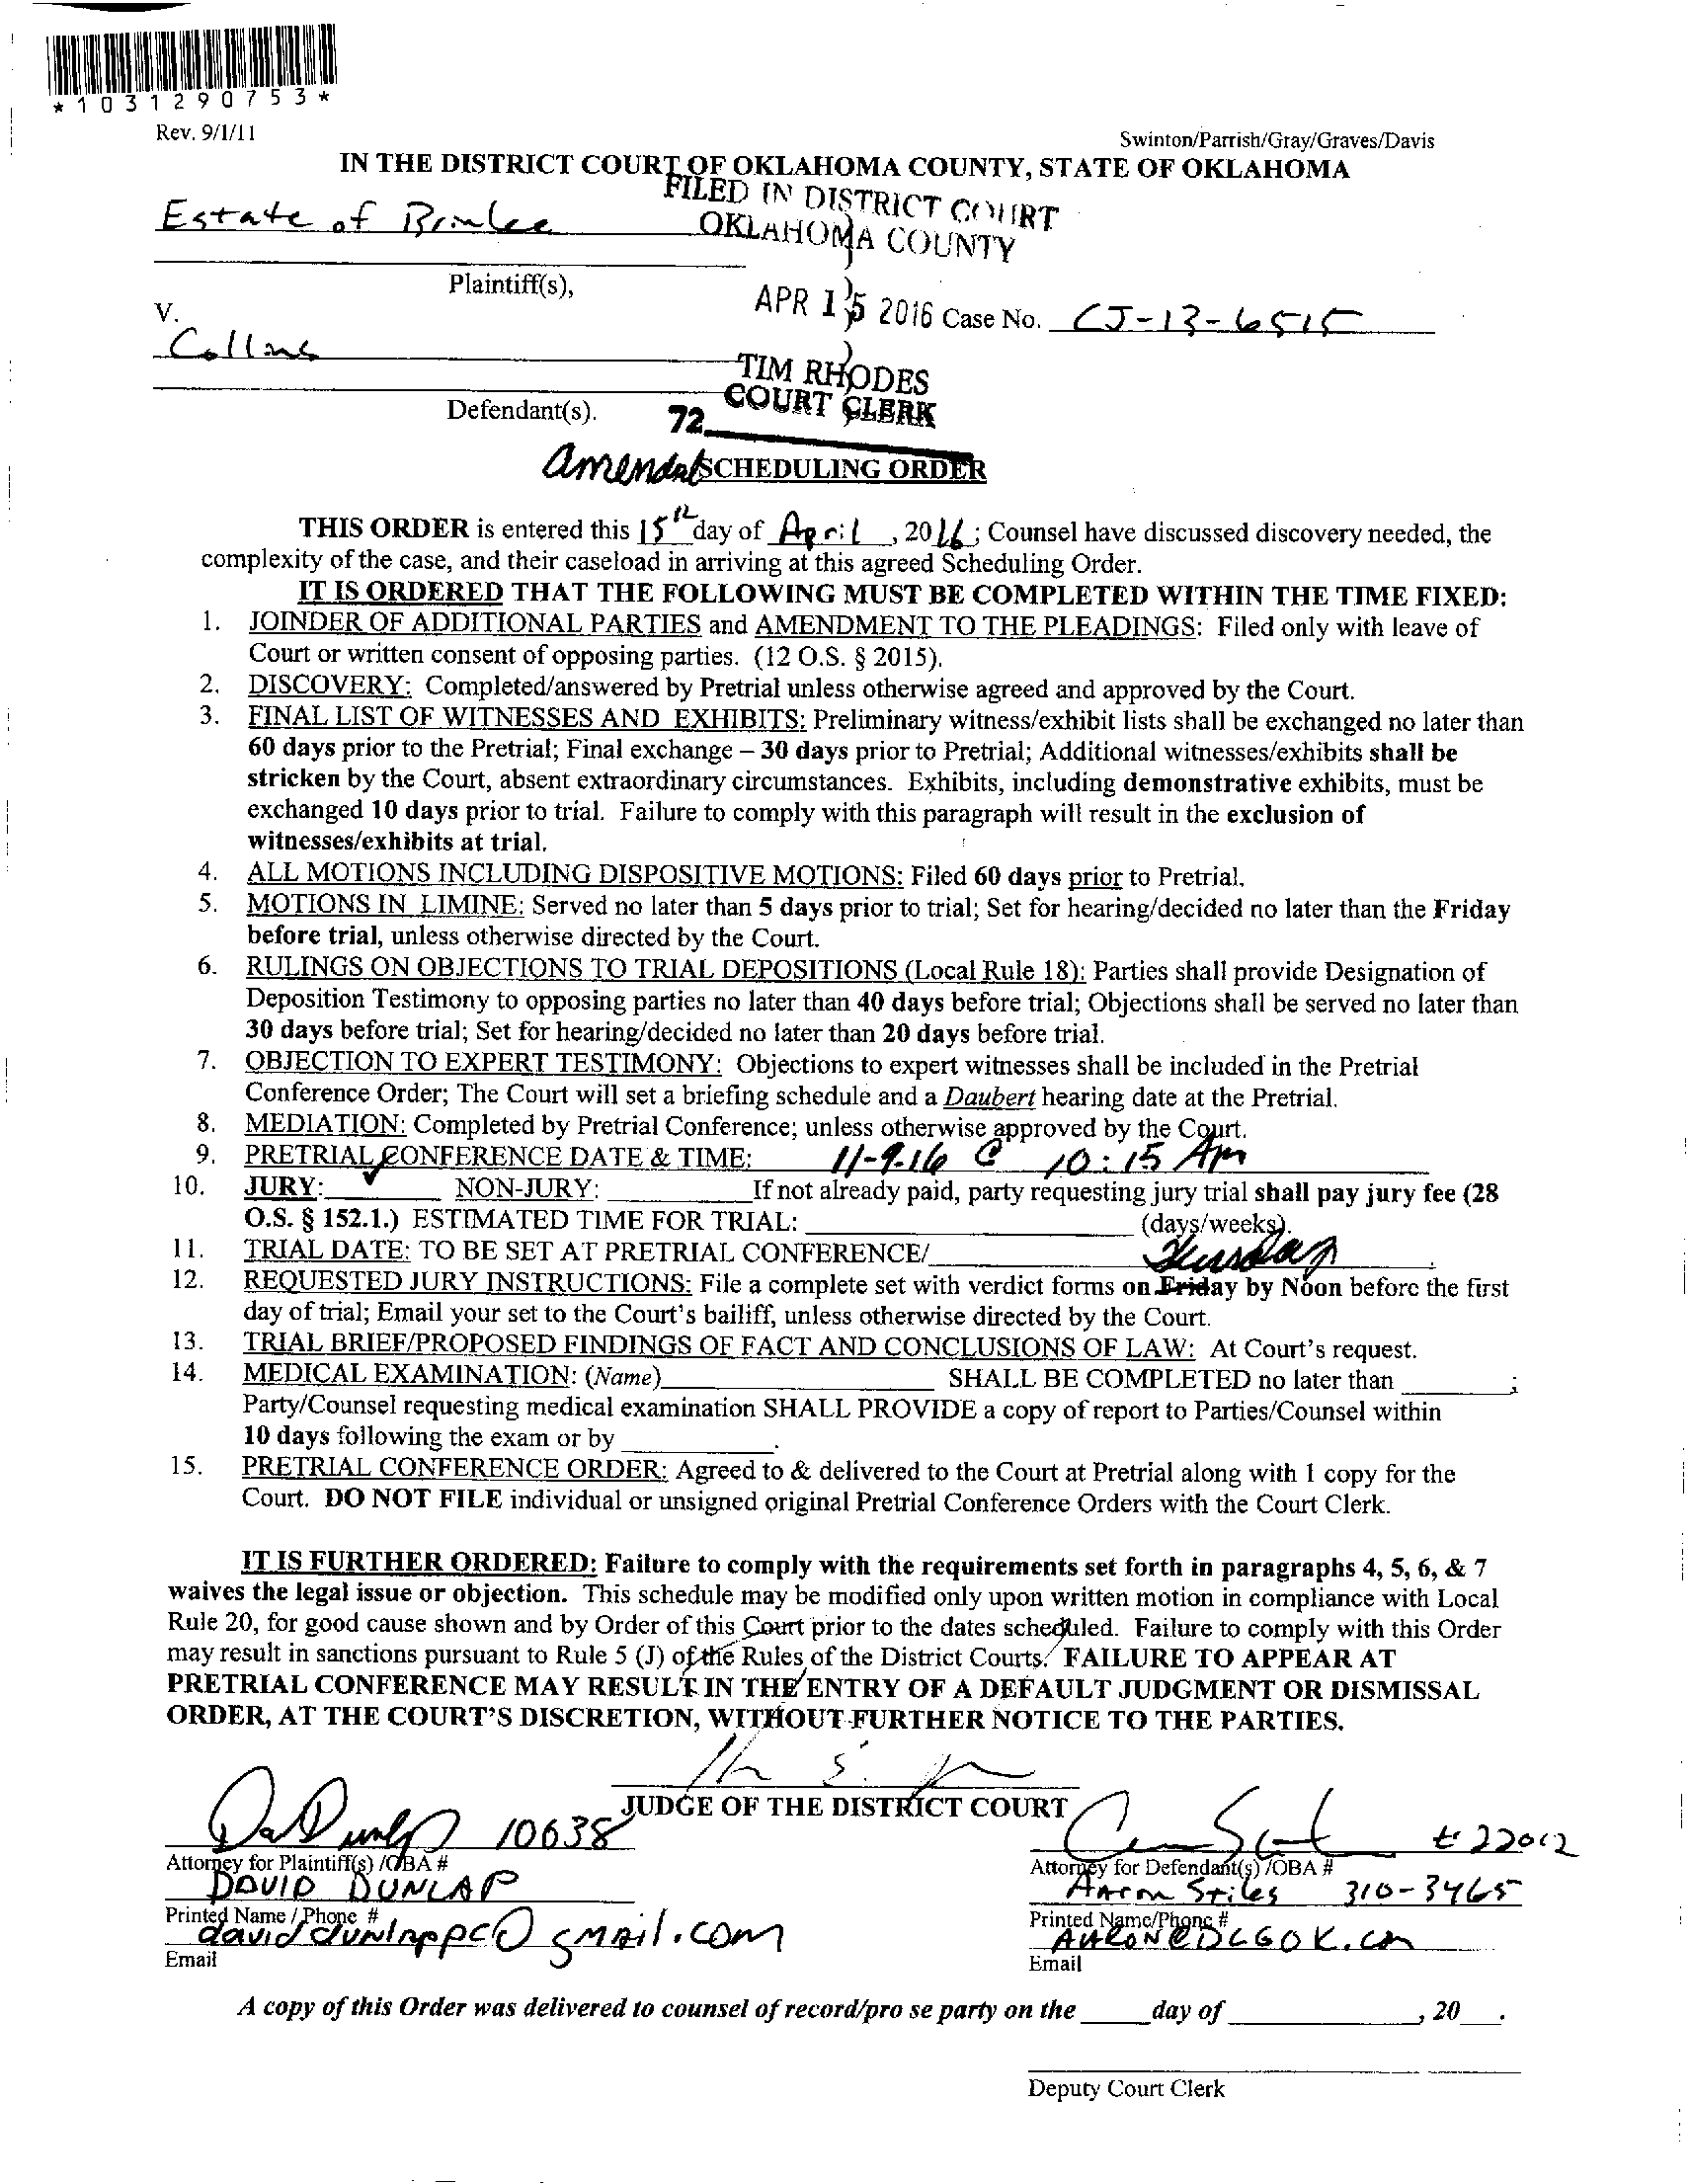 *1031290753*
Rev. 9/1/11
Swinton/Parrish/Gray/Graves/Davis
IN THE DISTRICT COURT OF OKLAHOMA COUNTY, STATE OF OKLAHOMA
FILED IN DISTRICT COURT
OKLAHOMA COUNTY
Estate of Brinlee
Plaintiff(s),
APR 15 2016 Case No. CJ-13-6515
V.
Collins
TIM RHODES
COURT CLERK
Defendant(s).
72
Amended SCHEDULING ORDER
THIS ORDER is entered this 15th day of April, 2016; Counsel have discussed discovery needed, the
complexity of the case, and their caseload in arriving at this agreed Scheduling Order.
IT IS ORDERED THAT THE FOLLOWING MUST BE COMPLETED WITHIN THE TIME FIXED:
1. JOINDER OF ADDITIONAL PARTIES and AMENDMENT TO THE PLEADINGS: Filed only with leave of
Court or written consent of opposing parties. (12 O.S. § 2015).
2. DISCOVERY: Completed/answered by Pretrial unless otherwise agreed and approved by the Court.
3. FINAL LIST OF WITNESSES AND EXHIBITS: Preliminary witness/exhibit lists shall be exchanged no later than
60 days prior to the Pretrial; Final exchange – 30 days prior to Pretrial; Additional witnesses/exhibits shall be
stricken by the Court, absent extraordinary circumstances. Exhibits, including demonstrative exhibits, must be
exchanged 10 days prior to trial. Failure to comply with this paragraph will result in the exclusion of
witnesses/exhibits at trial.
4. ALL MOTIONS INCLUDING DISPOSITIVE MOTIONS: Filed 60 days prior to Pretrial.
5. MOTIONS IN LIMINE: Served no later than 5 days prior to trial; Set for hearing/decided no later than the Friday
before trial, unless otherwise directed by the Court.
6. RULINGS ON OBJECTIONS TO TRIAL DEPOSITIONS (Local Rule 18): Parties shall provide Designation of
Deposition Testimony to opposing parties no later than 40 days before trial; Objections shall be served no later than
30 days before trial; Set for hearing/decided no later than 20 days before trial.
7. OBJECTION TO EXPERT TESTIMONY: Objections to expert witnesses shall be included in the Pretrial
Conference Order; The Court will set a briefing schedule and a Daubert hearing date at the Pretrial.
8. MEDIATION: Completed by Pretrial Conference; unless otherwise approved by the Court.
9. PRETRIAL CONFERENCE DATE & TIME: 11-9-16 @ 10:15 AM
10. JURY: ✓ NON-JURY: If not already paid, party requesting jury trial shall pay jury fee (28
O.S. § 152.1.) ESTIMATED TIME FOR TRIAL: (days/weeks).
11. TRIAL DATE: TO BE SET AT PRETRIAL CONFERENCE/
Thursday
12. REQUESTED JURY INSTRUCTIONS: File a complete set with verdict forms on Friday by Noon before the first
day of trial; Email your set to the Court's bailiff, unless otherwise directed by the Court.
13. TRIAL BRIEF/PROPOSED FINDINGS OF FACT AND CONCLUSIONS OF LAW: At Court's request.
14. MEDICAL EXAMINATION: (Name) SHALL BE COMPLETED no later than ;
Party/Counsel requesting medical examination SHALL PROVIDE a copy of report to Parties/Counsel within
10 days following the exam or by .
15. PRETRIAL CONFERENCE ORDER: Agreed to & delivered to the Court at Pretrial along with 1 copy for the
Court. DO NOT FILE individual or unsigned original Pretrial Conference Orders with the Court Clerk.
IT IS FURTHER ORDERED: Failure to comply with the requirements set forth in paragraphs 4, 5, 6, & 7
waives the legal issue or objection. This schedule may be modified only upon written motion in compliance with Local
Rule 20, for good cause shown and by Order of this Court prior to the dates scheduled. Failure to comply with this Order
may result in sanctions pursuant to Rule 5 (J) of the Rules of the District Courts. FAILURE TO APPEAR AT
PRETRIAL CONFERENCE MAY RESULT IN THE ENTRY OF A DEFAULT JUDGMENT OR DISMISSAL
ORDER, AT THE COURT'S DISCRETION, WITHOUT FURTHER NOTICE TO THE PARTIES.
JUDGE OF THE DISTRICT COURT
10638
# 22012
Attorney for Plaintiff(s) /OBA #
Attorney for Defendant(s) /OBA #
DAVID DUNLAP
Aaron Stiles 310-3465
Printed Name / Phone #
Printed Name/Phone #
daviddunlappc@gmail.com
AARON@DCGOK.com
Email
Email
A copy of this Order was delivered to counsel of record/pro se party on the day of , 20 .
Deputy Court Clerk